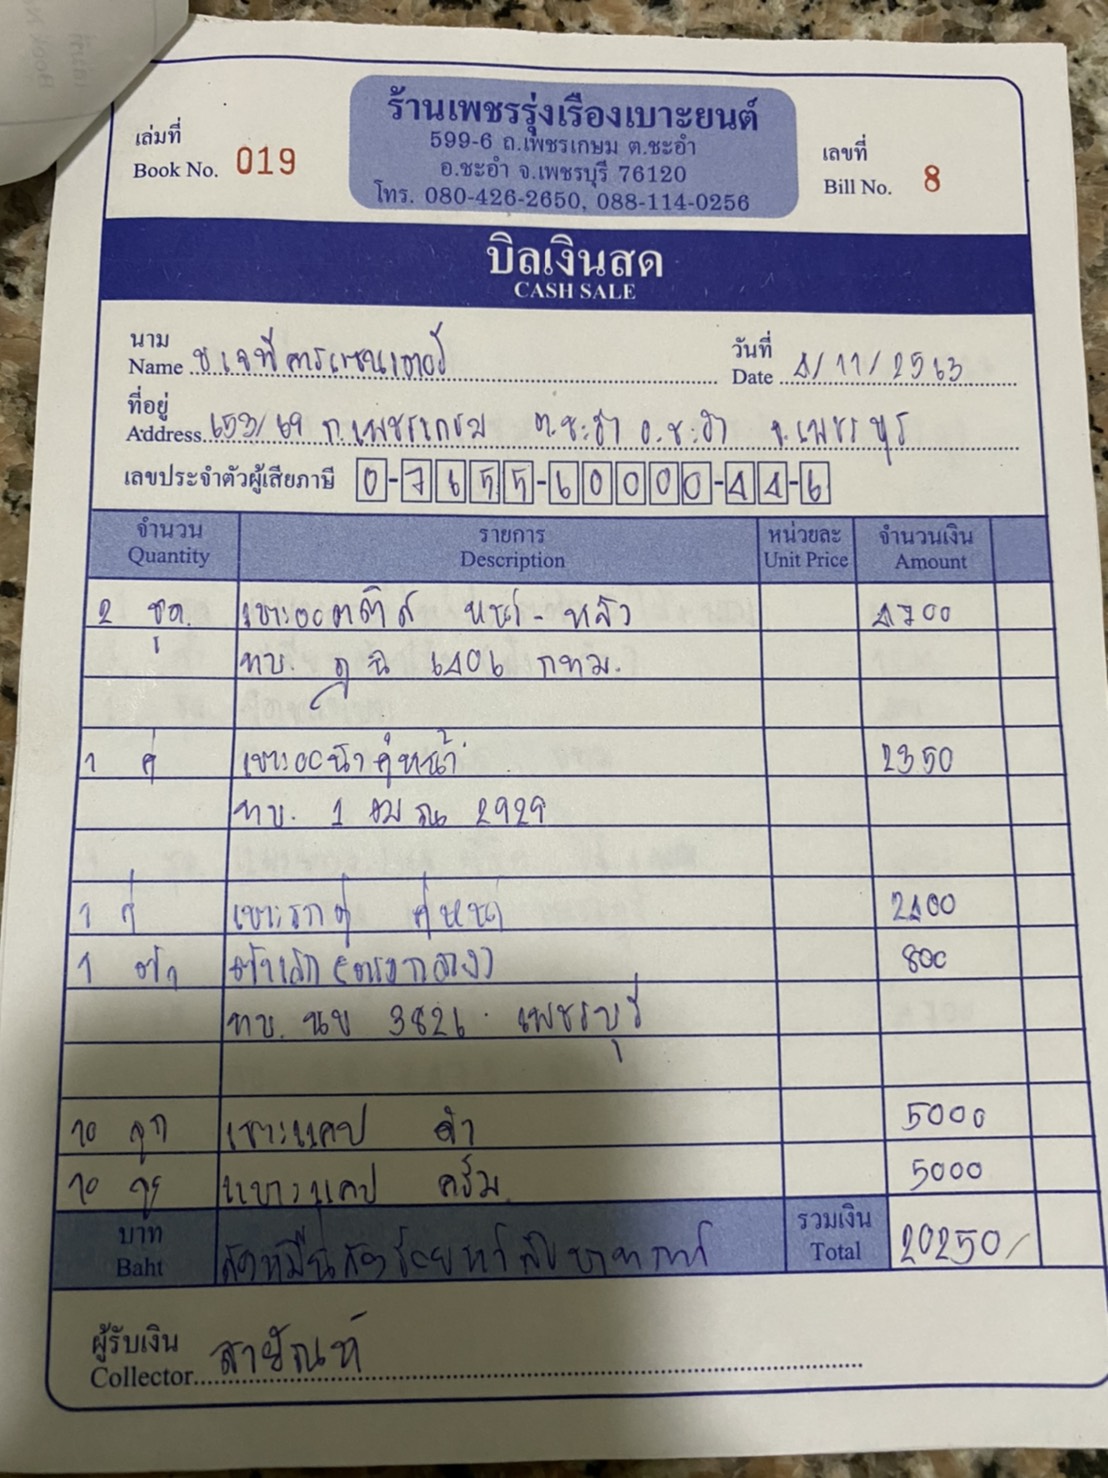 ร้านเพชรรุ่งเรืองเบาะยนต์
599-6 ถ.เพชรเกษม ต.ชะอำ
อ.ชะอำ จ.เพชรบุรี 76120
โทร. 080-426-2650, 088-114-0256
เล่มที่
Book No. 019
เลขที่
Bill No. 8
บิลเงินสด
CASH SALE
นาม
Name ช เจพีคาร์เซนเตอร์
วันที่
Date 4/11/2563
ที่อยู่
Address 653/69 ถ.เพชรเกษม ต.ชะอำ อ.ชะอำ จ.เพชรบุรี
เลขประจำตัวผู้เสียภาษี 0-7655-60000-44-6
จำนวน รายการ หน่วยละ จำนวนเงิน
Quantity Description Unit Price Amount
2 ชุด. เบาะออตติส หน้า-หลัง 4700
ทบ. 6406 กทม.
1 คู่ เบาะ คู่หน้า 2350
ทบ. 1 ฒณ 2929
1 คู่ เบาะรถตู้ คู่หน้า 2400
1 ตัว ตัวเล็ก (ตรงกลาง) 800
ทบ. นข 3826 เพชรบุรี
10 ลูก เบาะแคป ดำ 5000
10 ลูก เบาะแคป ครีม 5000
บาท
Baht สองหมื่นสองร้อยห้าสิบบาทถ้วน
รวมเงิน
Total 20250/
ผู้รับเงิน
Collector สายัณห์